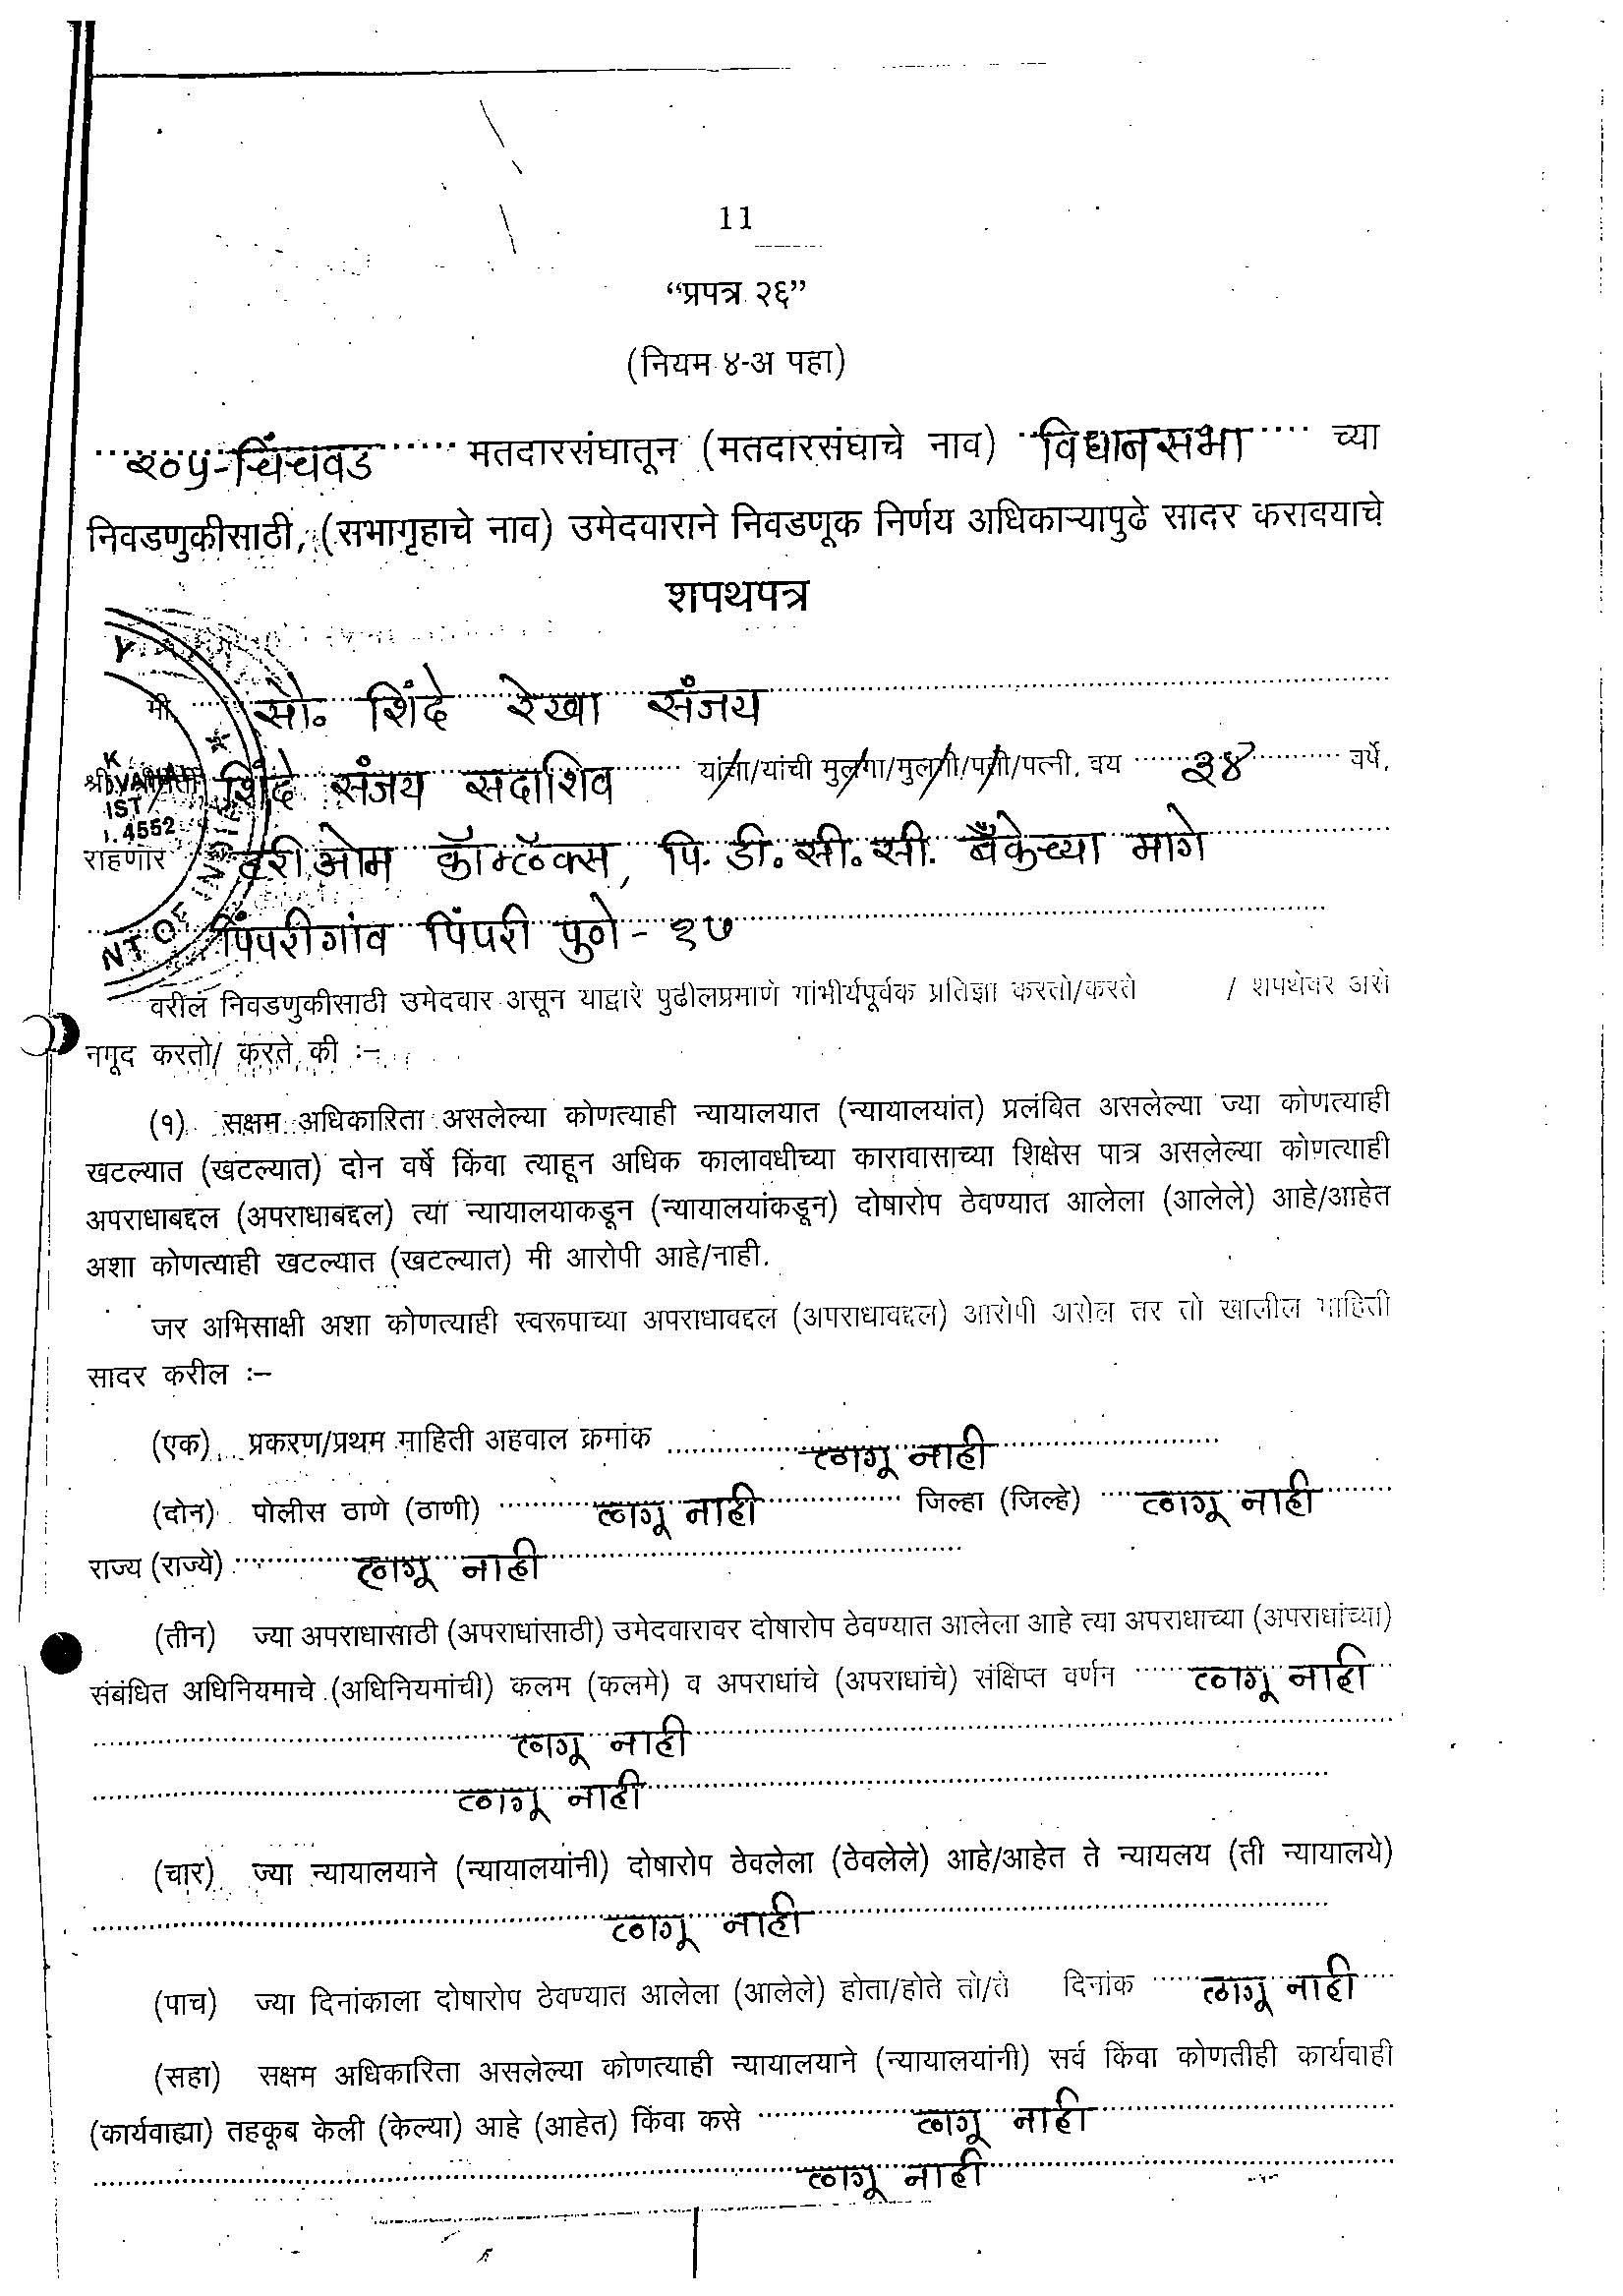 11
“प्रपत्र २६”
(नियम ४-अ पहा)
२०५-चिंचवड मतदारसंघातून (मतदारसंघाचे नाव) विधानसभा च्या
निवडणुकीसाठी, (सभागृहाचे नाव) उमेदवाराने निवडणूक निर्णय अधिकाऱ्यापुढे सादर करावयाचे
शपथपत्र
मी, सौ. शिंदे रेखा संजय
श्री. शिंदे संजय सदाशिव यांचा/यांची मुलगा/मुलगी/पती/पत्नी. वय ३४ वर्षे,
राहणार हरीओम कॉम्प्लेक्स, पि. डी. सी. सी. बँकेच्या मागे
पिंपरीगांव पिंपरी पुणे - १७
वरील निवडणुकीसाठी उमेदवार असून याद्वारे पुढीलप्रमाणे गांभीर्यपूर्वक प्रतिज्ञा करतो/करते / शपथेवर असे
नमूद करतो/ करते की :–
(१) सक्षम अधिकारिता असलेल्या कोणत्याही न्यायालयात (न्यायालयांत) प्रलंबित असलेल्या ज्या कोणत्याही
खटल्यात (खटल्यात) दोन वर्षे किंवा त्याहून अधिक कालावधीच्या कारावासाच्या शिक्षेस पात्र असलेल्या कोणत्याही
अपराधाबद्दल (अपराधाबद्दल) त्या न्यायालयाकडून (न्यायालयांकडून) दोषारोप ठेवण्यात आलेला (आलेले) आहे/आहेत
अशा कोणत्याही खटल्यात (खटल्यात) मी आरोपी आहे/नाही.
जर अभिसाक्षी अशा कोणत्याही स्वरूपाच्या अपराधाबद्दल (अपराधाबद्दल) आरोपी असेल तर तो खालील माहिती
सादर करील :–
(एक) प्रकरण/प्रथम माहिती अहवाल क्रमांक लागू नाही
(दोन) पोलीस ठाणे (ठाणी) लागू नाही जिल्हा (जिल्हे) लागू नाही
राज्य (राज्ये) लागू नाही
(तीन) ज्या अपराधासाठी (अपराधांसाठी) उमेदवारावर दोषारोप ठेवण्यात आलेला आहे त्या अपराधाच्या (अपराधांच्या)
संबंधित अधिनियमाचे (अधिनियमांची) कलम (कलमे) व अपराधांचे (अपराधांचे) संक्षिप्त वर्णन लागू नाही
लागू नाही
लागू नाही
(चार) ज्या न्यायालयाने (न्यायालयांनी) दोषारोप ठेवलेला (ठेवलेले) आहे/आहेत ते न्यायलय (ती न्यायालये)
लागू नाही
(पाच) ज्या दिनांकाला दोषारोप ठेवण्यात आलेला (आलेले) होता/होते तो/ते दिनांक लागू नाही
(सहा) सक्षम अधिकारिता असलेल्या कोणत्याही न्यायालयाने (न्यायालयांनी) सर्व किंवा कोणतीही कार्यवाही
(कार्यवाह्या) तहकूब केली (केल्या) आहे (आहेत) किंवा कसे लागू नाही
लागू नाही